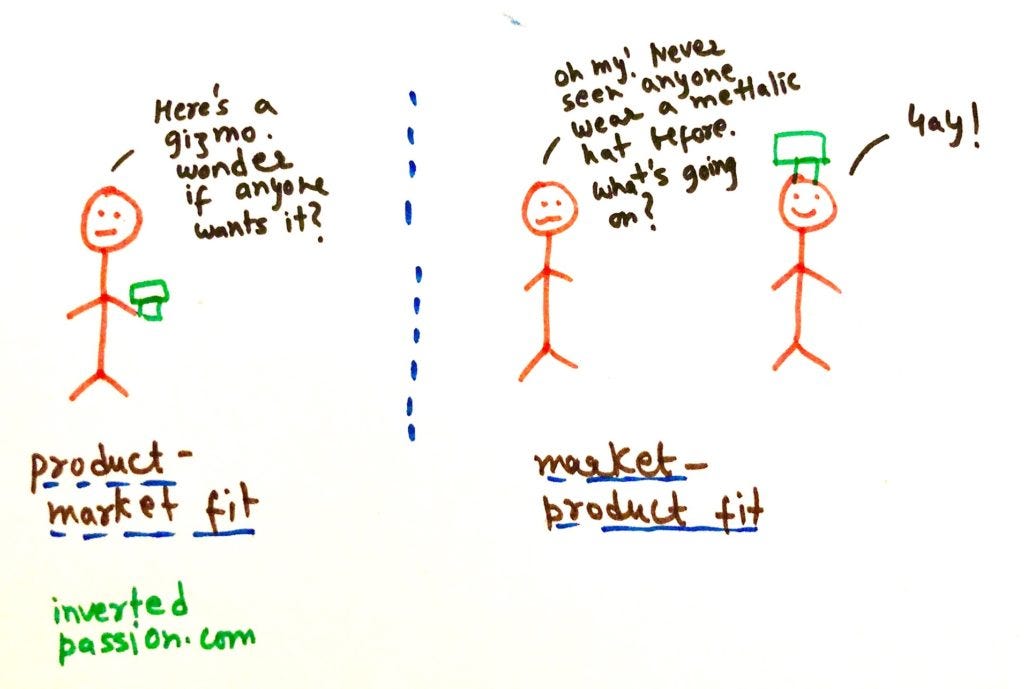 Here's a
gizmo.
wonder
if anyone
wants it?
product-
market fit
oh my! Never
seen anyone
wear a metallic
hat before.
what's going
on?
Yay!
market-
product fit
inverted
passion.com